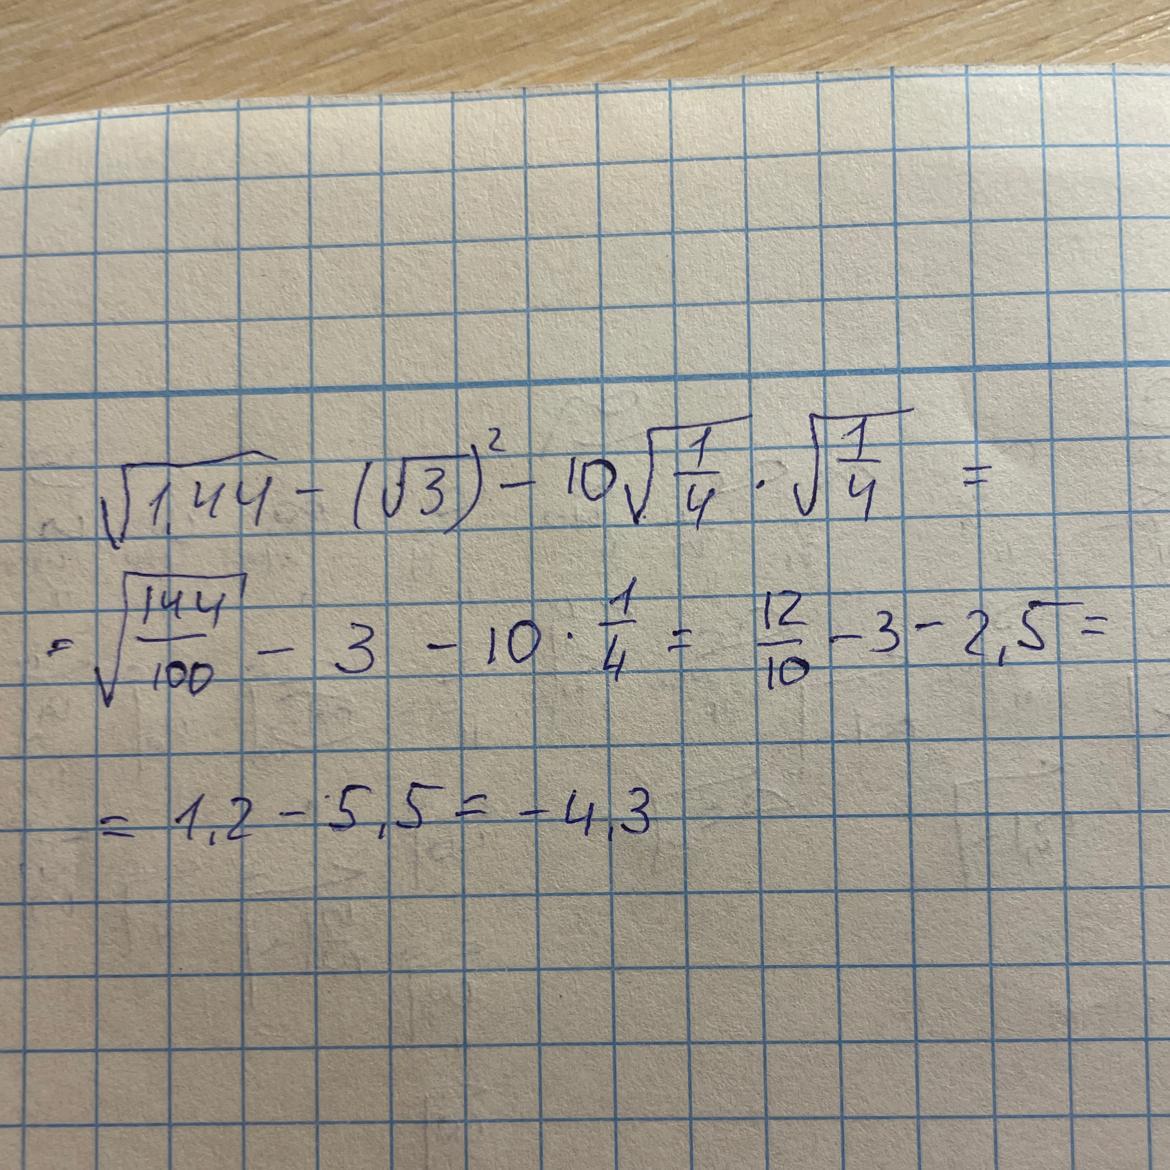 √1,44 - (√3)² - 10√1/4 · √1/4 =
= √144/100 - 3 - 10 · 1/4 = 12/10 - 3 - 2,5 =
= 1,2 - 5,5 = - 4,3